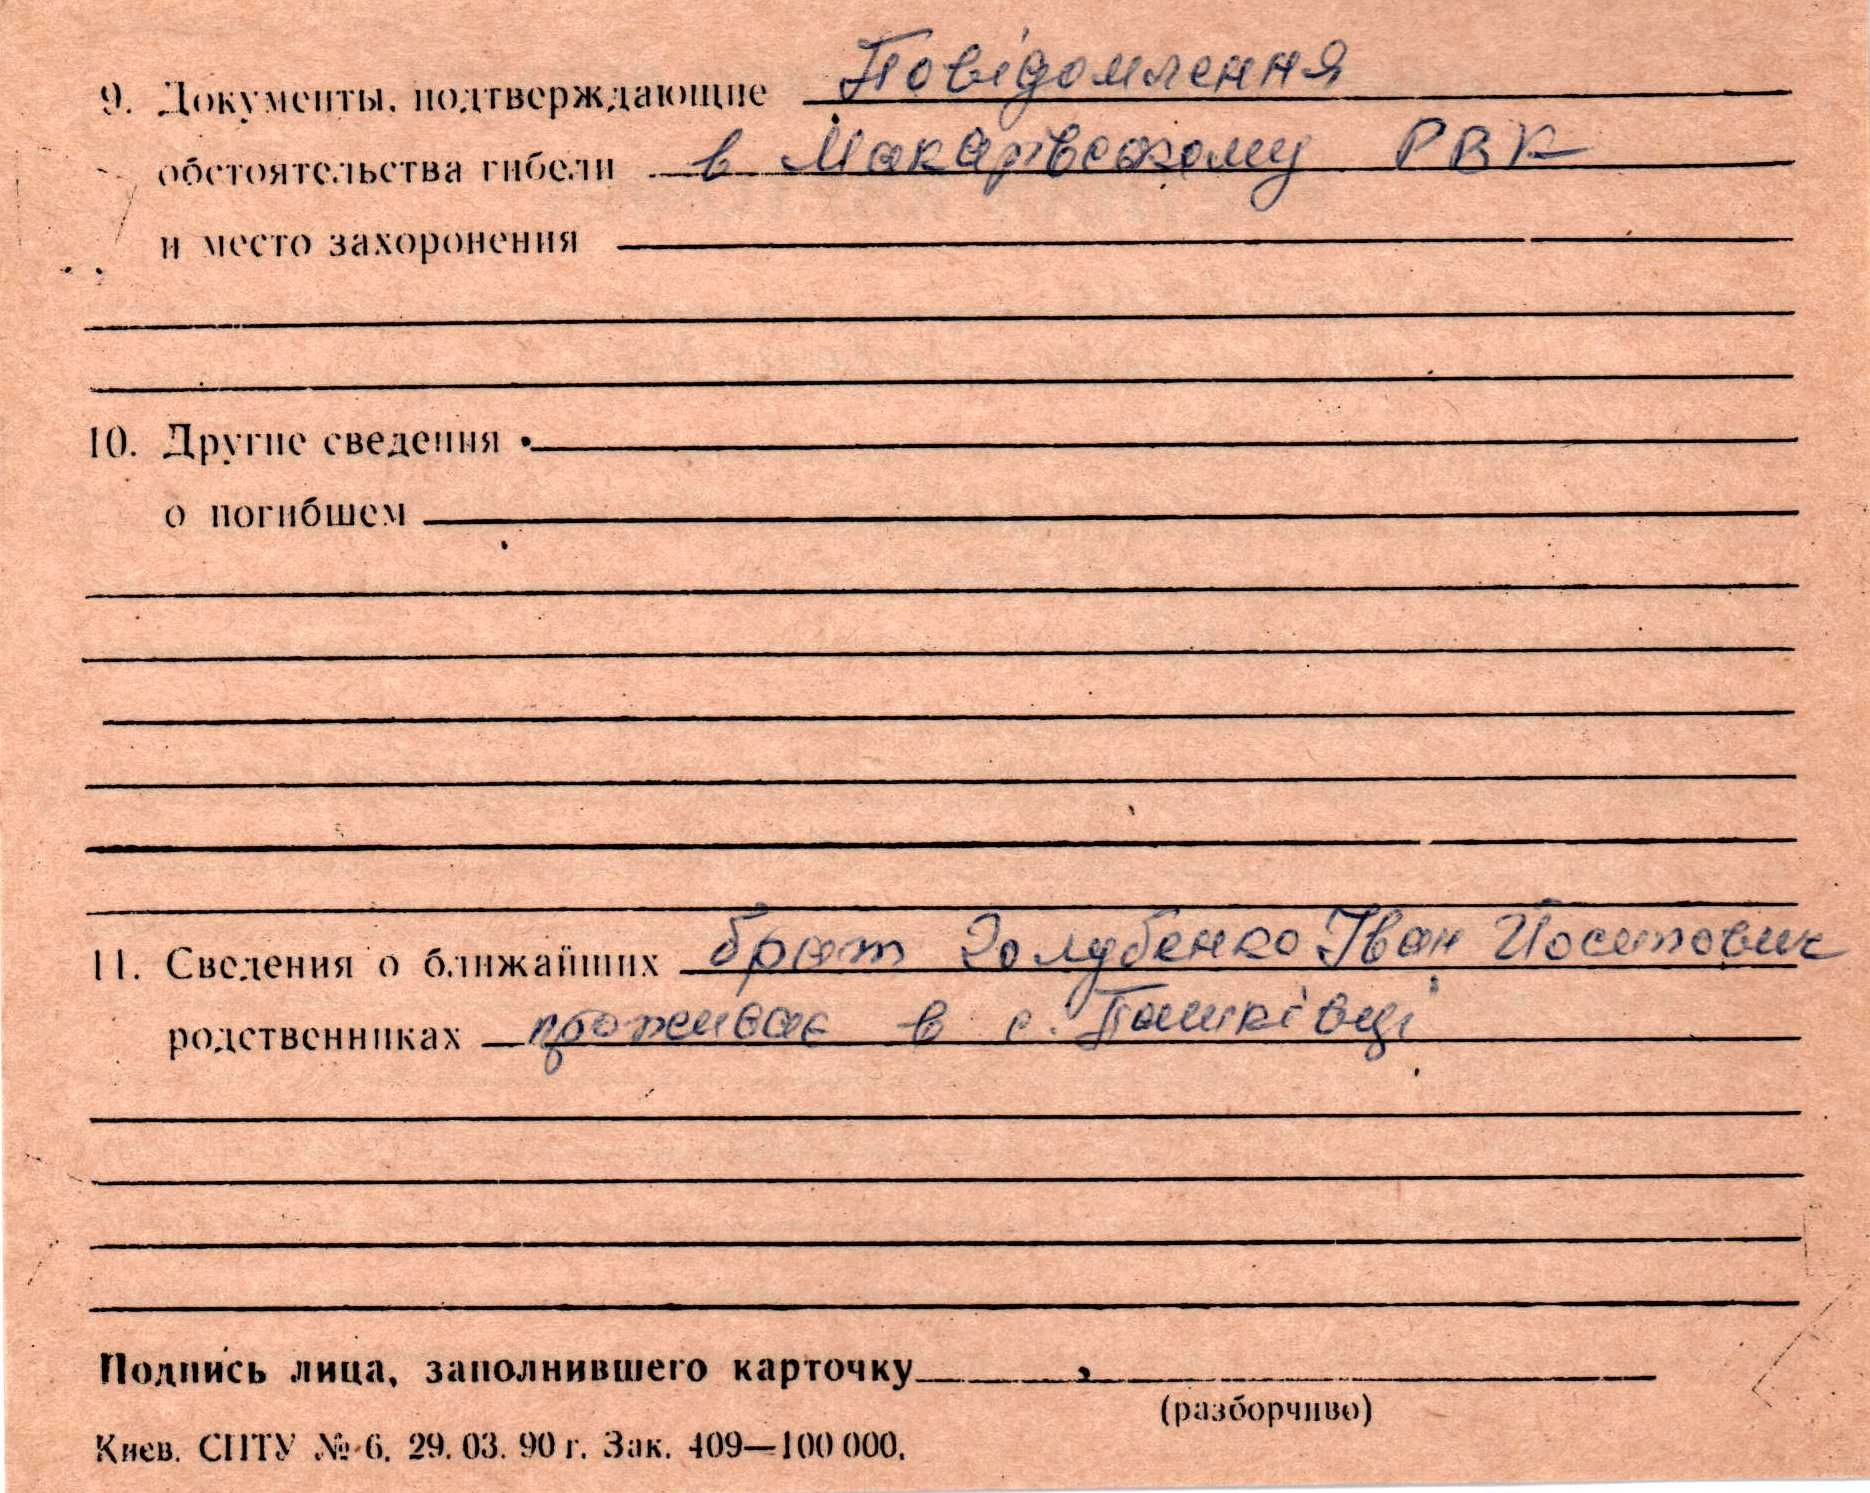 9. Документы, подтверждающие Повідомлення
обстоятельства гибели в Макарівському РВК
и место захоронения
10. Другие сведения
о погибшем
11. Сведения о ближайших брат Голубенко Іван Йосипович
родственниках проживає в с. Пашківці
Подпись лица, заполнившего карточку
(разборчиво)
Киев. СПТУ № 6. 29. 03. 90 г. Зак. 409—100 000.